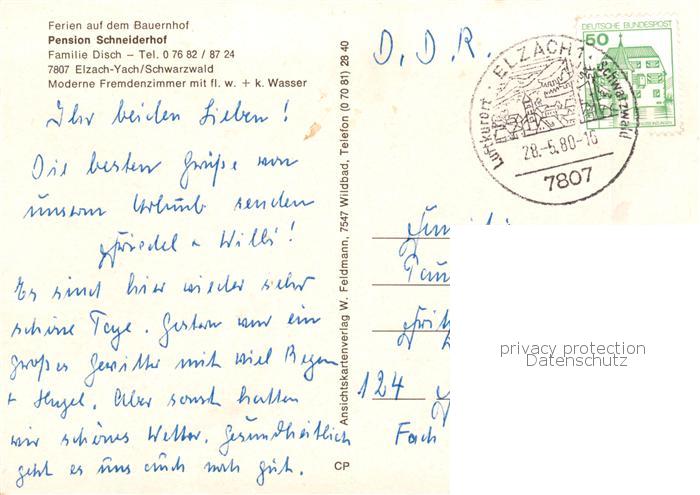 Ferien auf dem Bauernhof
Pension Schneiderhof
Familie Disch – Tel. 0 76 82 / 87 24
7807 Elzach-Yach/Schwarzwald
Moderne Fremdenzimmer mit fl. w. + k. Wasser
Ihr beiden Lieben!
Die besten Grüße von
unserm Urlaub senden
Friedel + Willi!
Es sind hier wieder sehr
schöne Tage. Gestern war ein
großes Gewitter mit viel Regen
+ Hagel. Aber sonst hatten
wir schönes Wetter. Gesundheitlich
geht es uns auch noch gut.
CP
Ansichtskartenverlag W. Feldmann, 7547 Wildbad, Telefon (0 70 81) 28 40
D. D. R.
ELZACH 1
Luftkurort
Schwarzwald
28.-5.80-16
7807
DEUTSCHE BUNDESPOST
50
124
Fach
privacy protection
Datenschutz